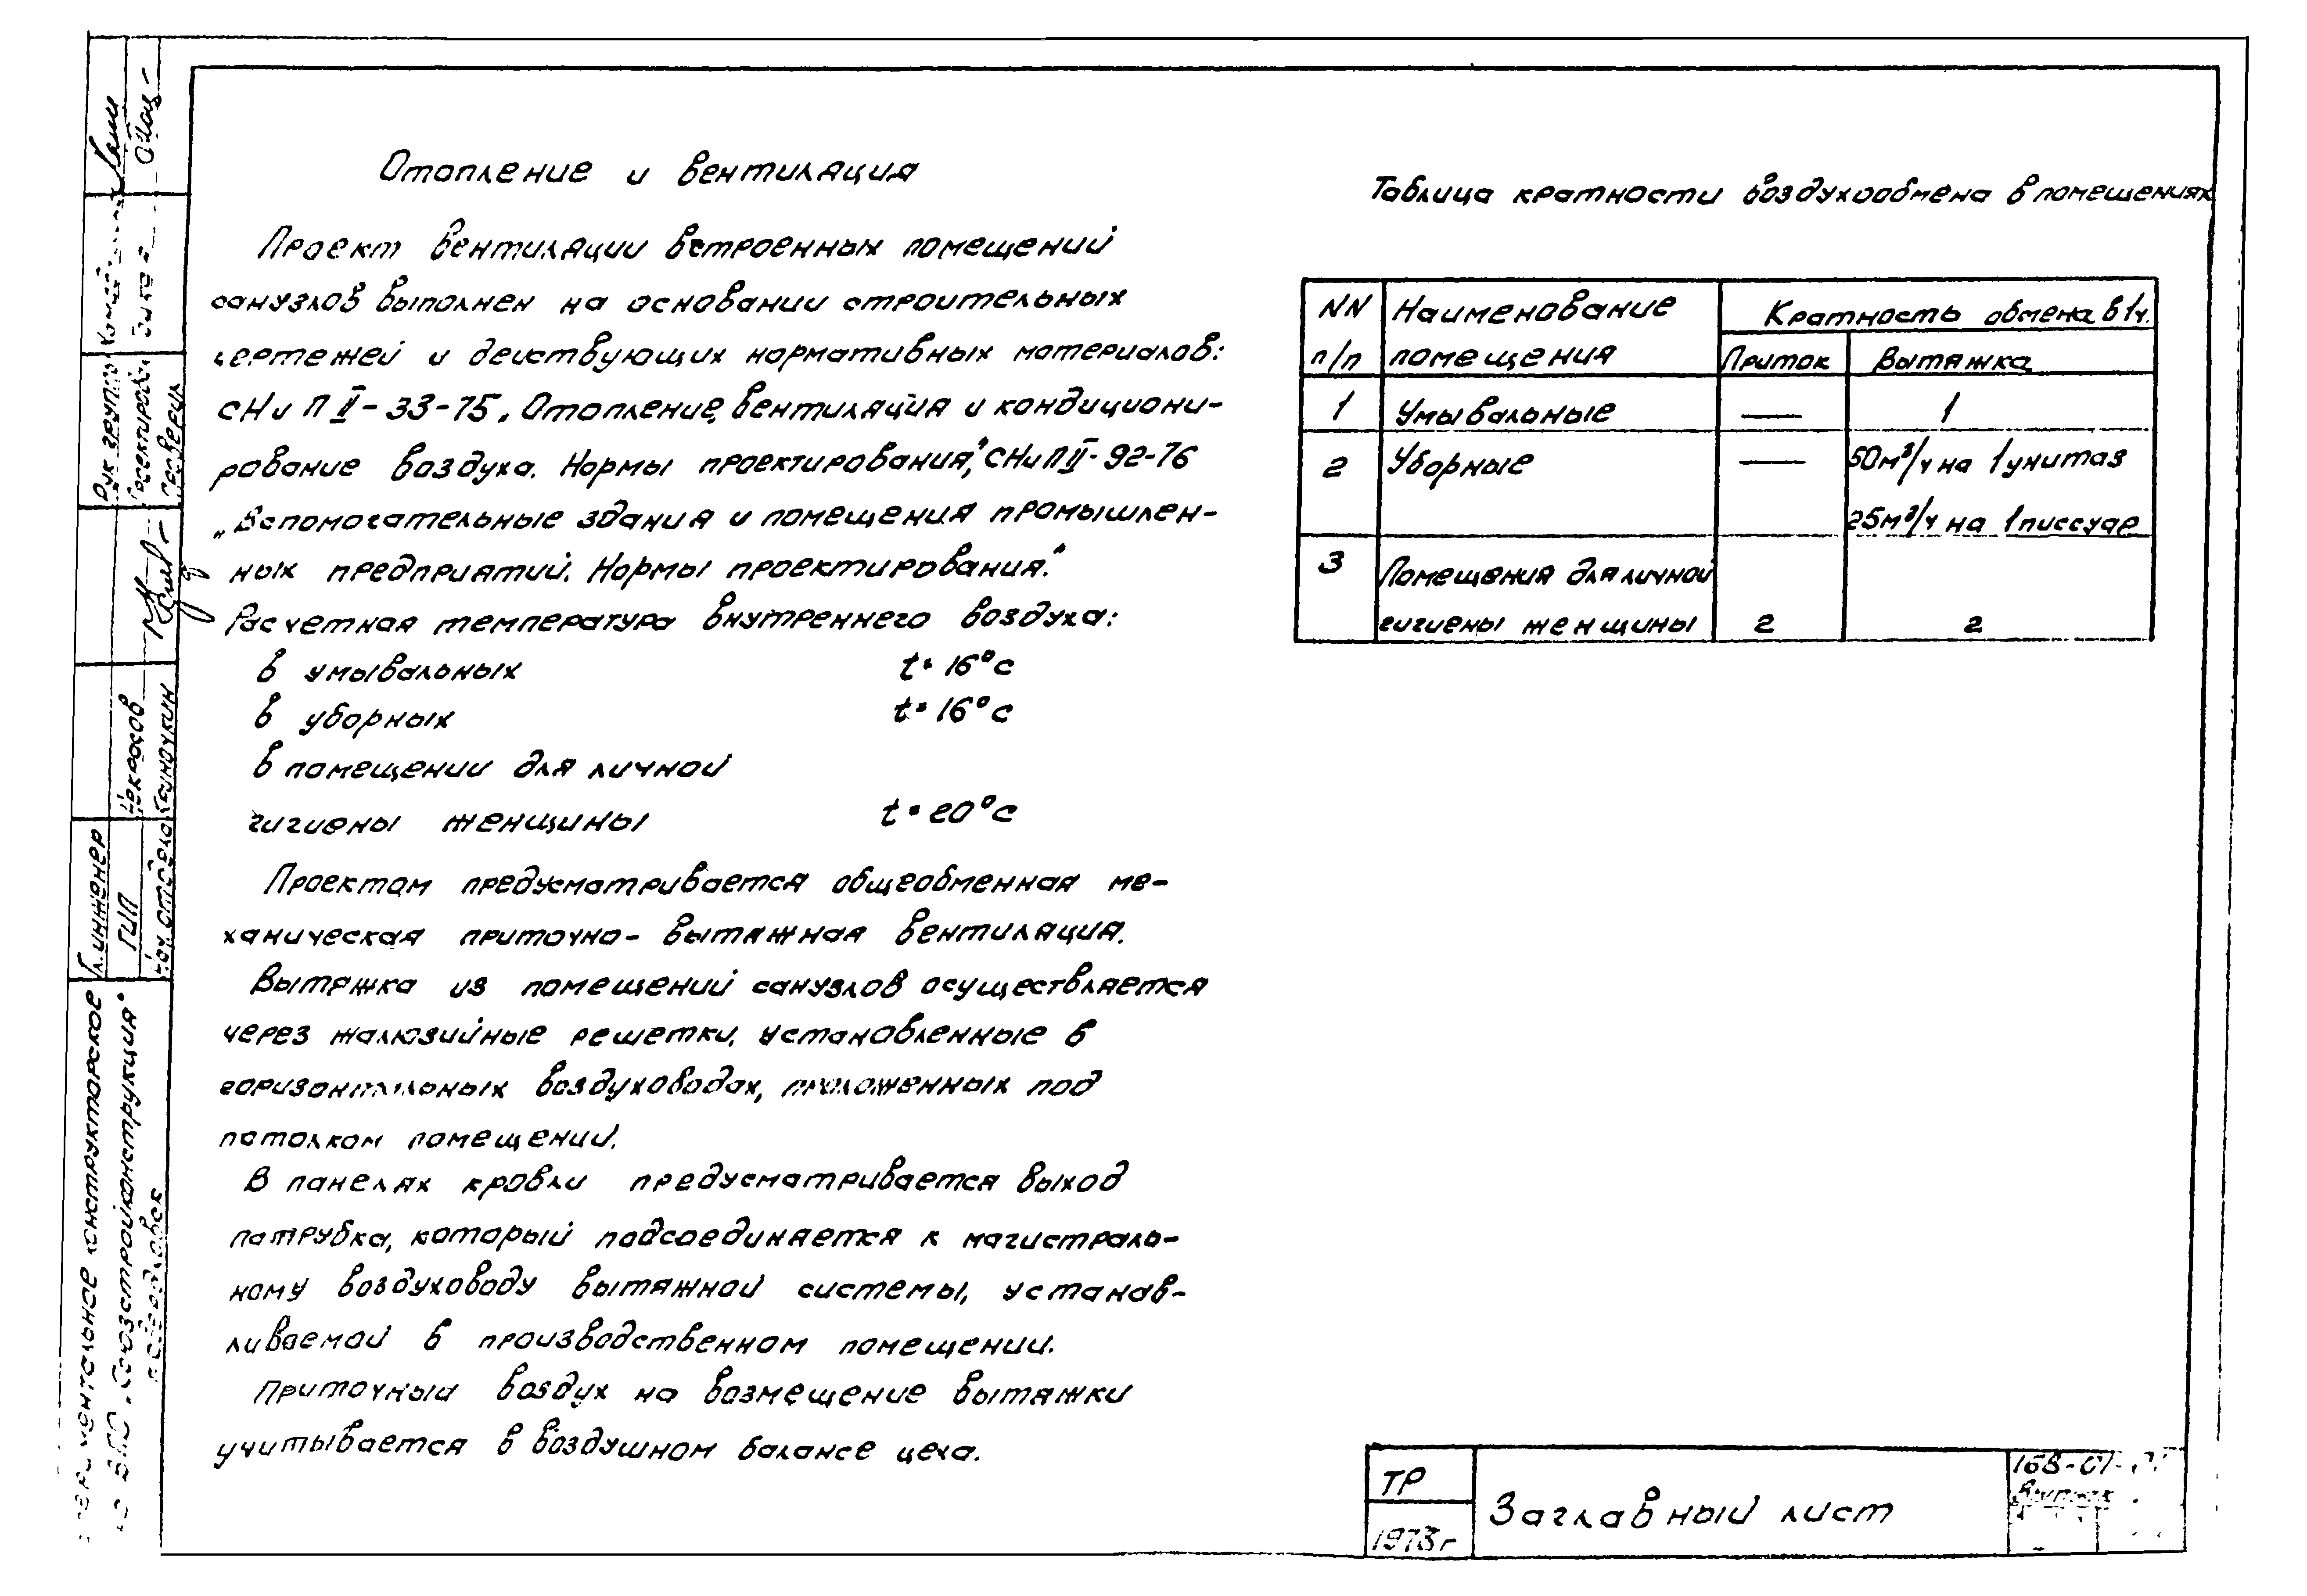 Отопление и вентиляция
Проект вентиляции встроенных помещений
санузлов выполнен на основании строительных
чертежей и действующих нормативных материалов:
СНиП II-33-75 „Отопление, вентиляция и кондициони-
рование воздуха. Нормы проектирования," СНиП II-92-76
„Вспомогательные здания и помещения промышлен-
ных предприятий. Нормы проектирования."
Расчетная температура внутреннего воздуха:
в умывальных t=16°с
в уборных t=16°с
в помещении для личной
гигиены женщины t=20°с
Проектом предусматривается общеобменная ме-
ханическая приточно-вытяжная вентиляция.
Вытяжка из помещений санузлов осуществляется
через жалюзийные решетки, установленные в
горизонтальных воздуховодах, проложенных под
потолком помещений.
В панелях кровли предусматривается выход
патрубка, который подсоединяется к магистраль-
ному воздуховоду вытяжной системы, устанав-
ливаемой в производственном помещении.
Приточный воздух на возмещение вытяжки
учитывается в воздушном балансе цеха.
Таблица кратности воздухообмена в помещениях
NN п/п
Наименование помещения
Кратность обмена в 1ч.
Приток
Вытяжка
1 Умывальные — 1
2 Уборные — 50м³/ч на 1 унитаз
25м³/ч на 1 писсуар
3 Помещения для личной
гигиены женщины 2 2
ТР
1973г
Заглавный лист
168-01-
Выпуск
Рук группы
Проверил
Некрасов
Гл.инженер
ГИП
Нач отдела
конструкторское